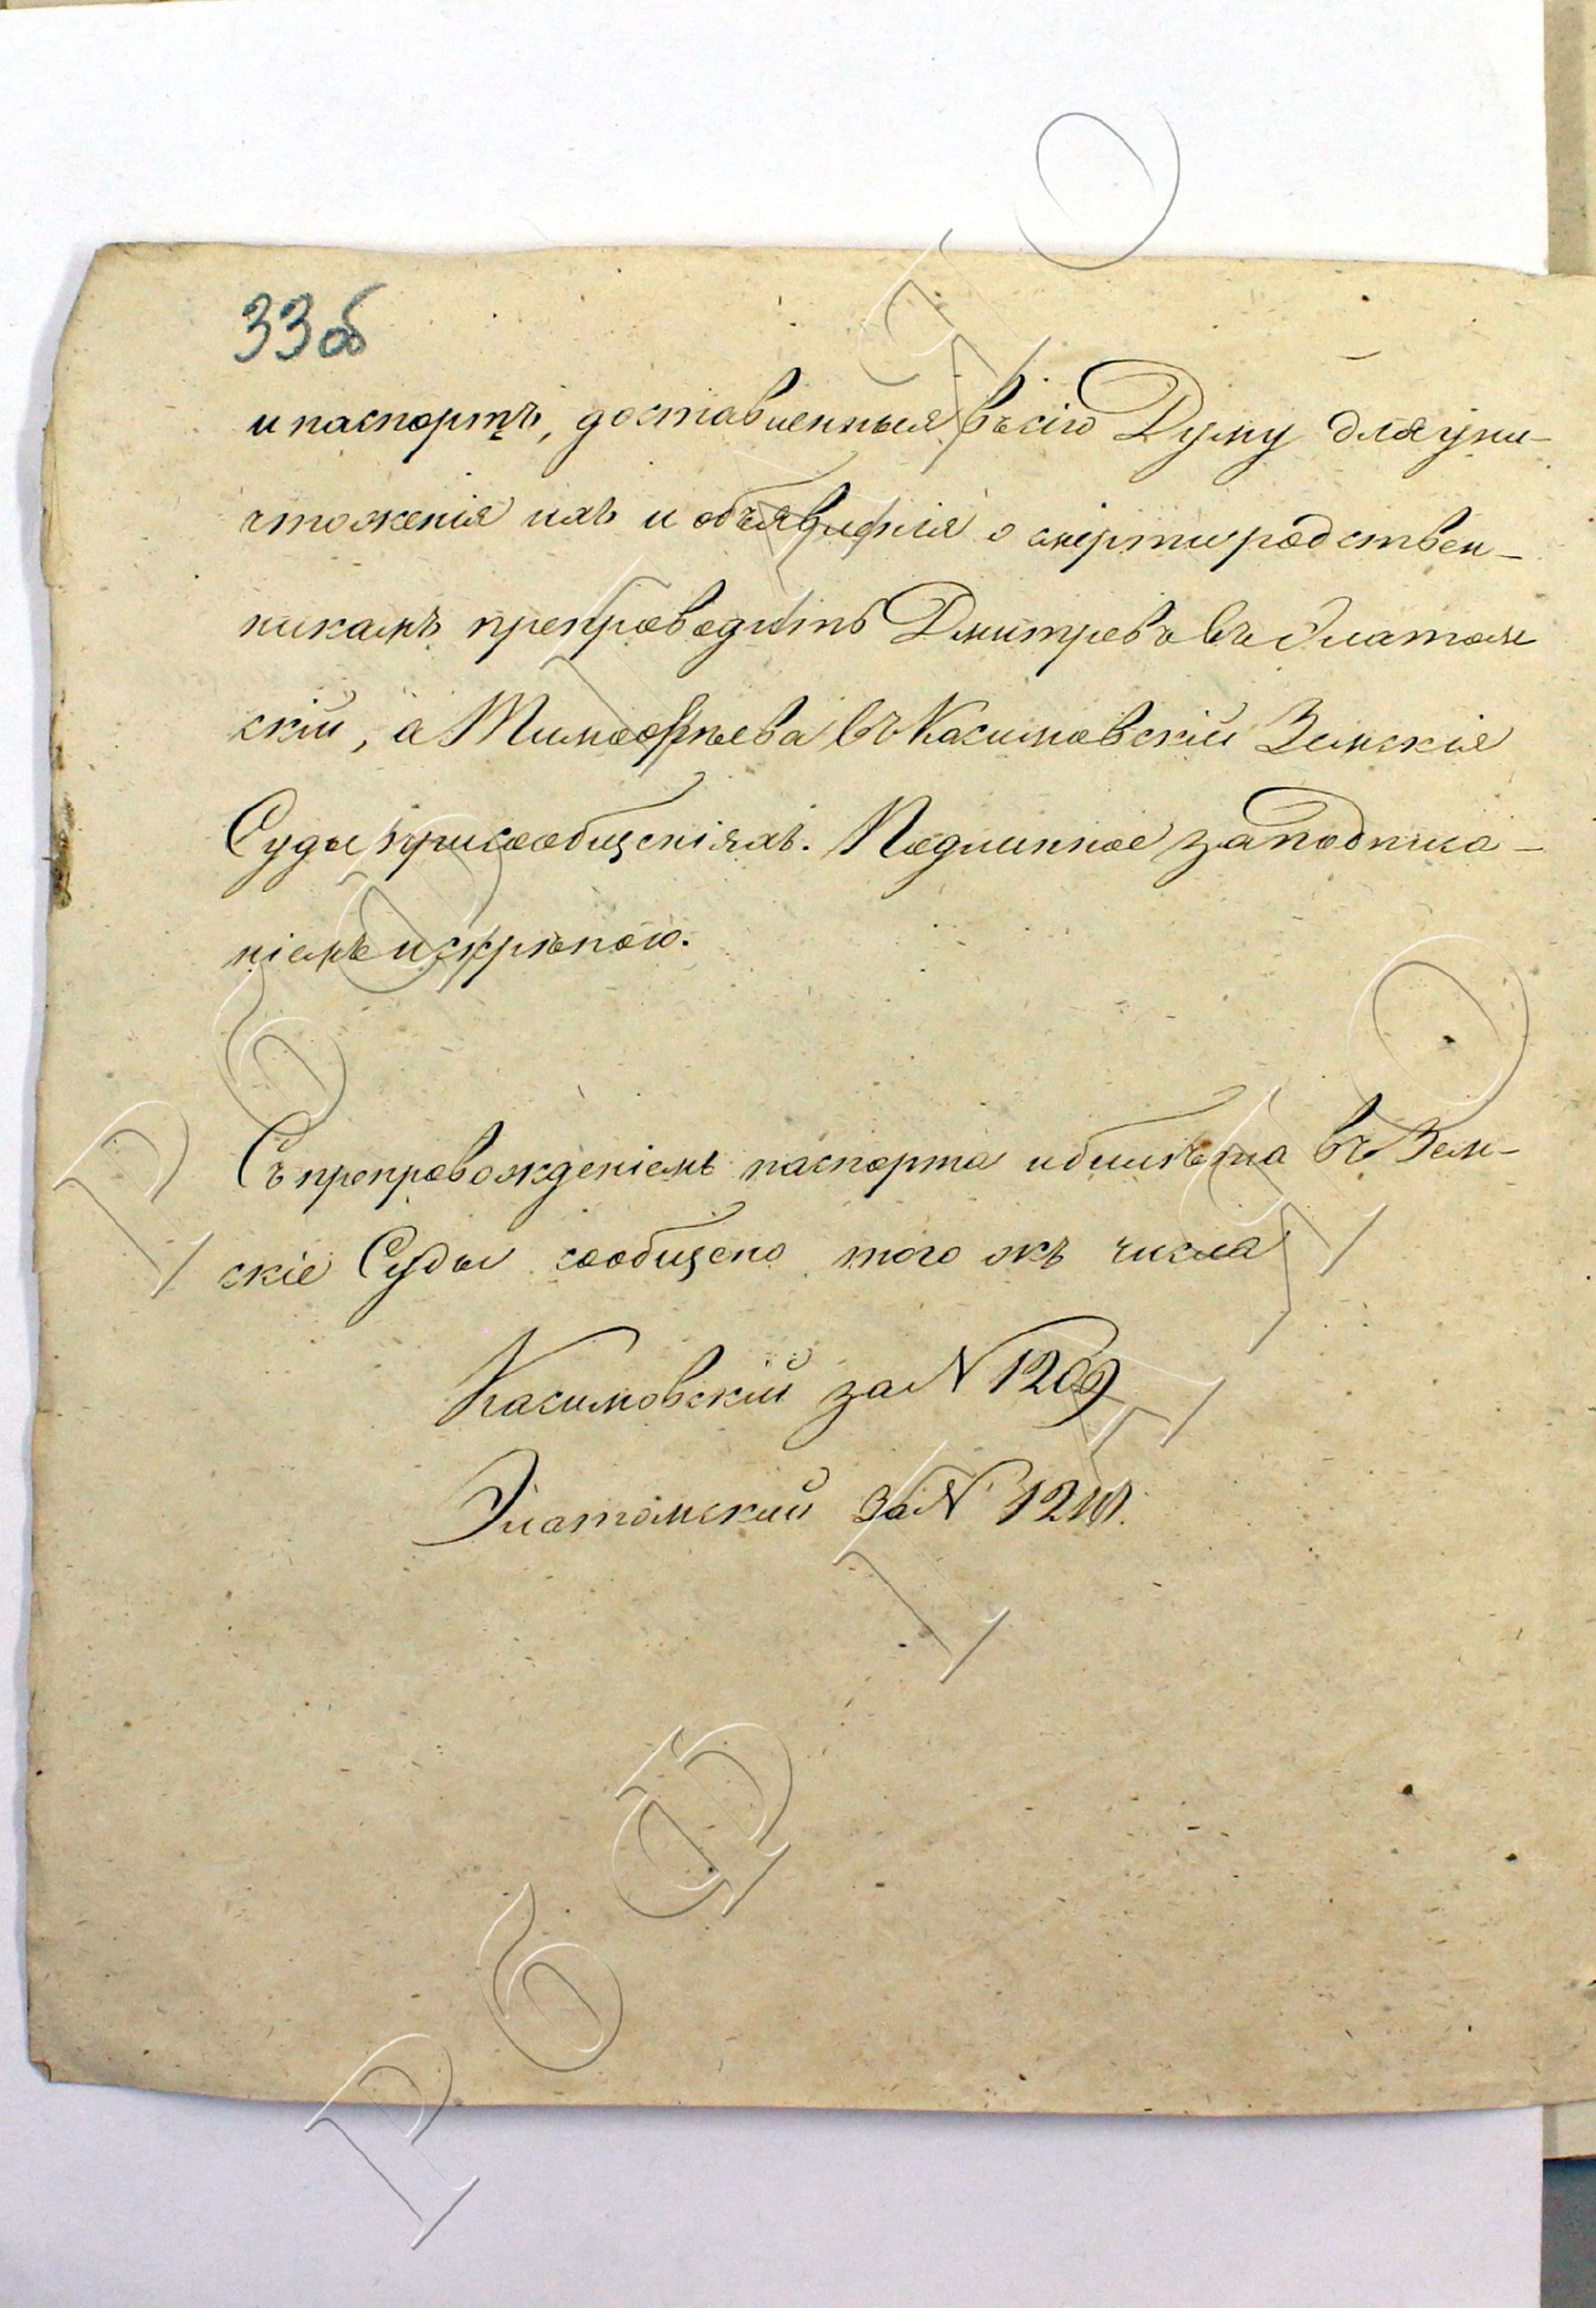 33об
и паспортъ, доставленныя въ сію Думу для уни-
чтоженія ихъ и объявленія о смерти родствен-
никамъ препроводить Дмитрева въ Элатом
скій, а Тимофѣева въ Касимовскій Земскія
Суды при сообщеніяхъ. Подлинное за подписа-
ніемъ и скрѣпою.
Съ препровожденіемъ паспорта и билѣта въ Зем-
скіе Суды сообщено того жъ числа
Касимовскій за N 1209
Элатомскій за N 1210.
РбФ ГАЯО
РбФ ГАЯО